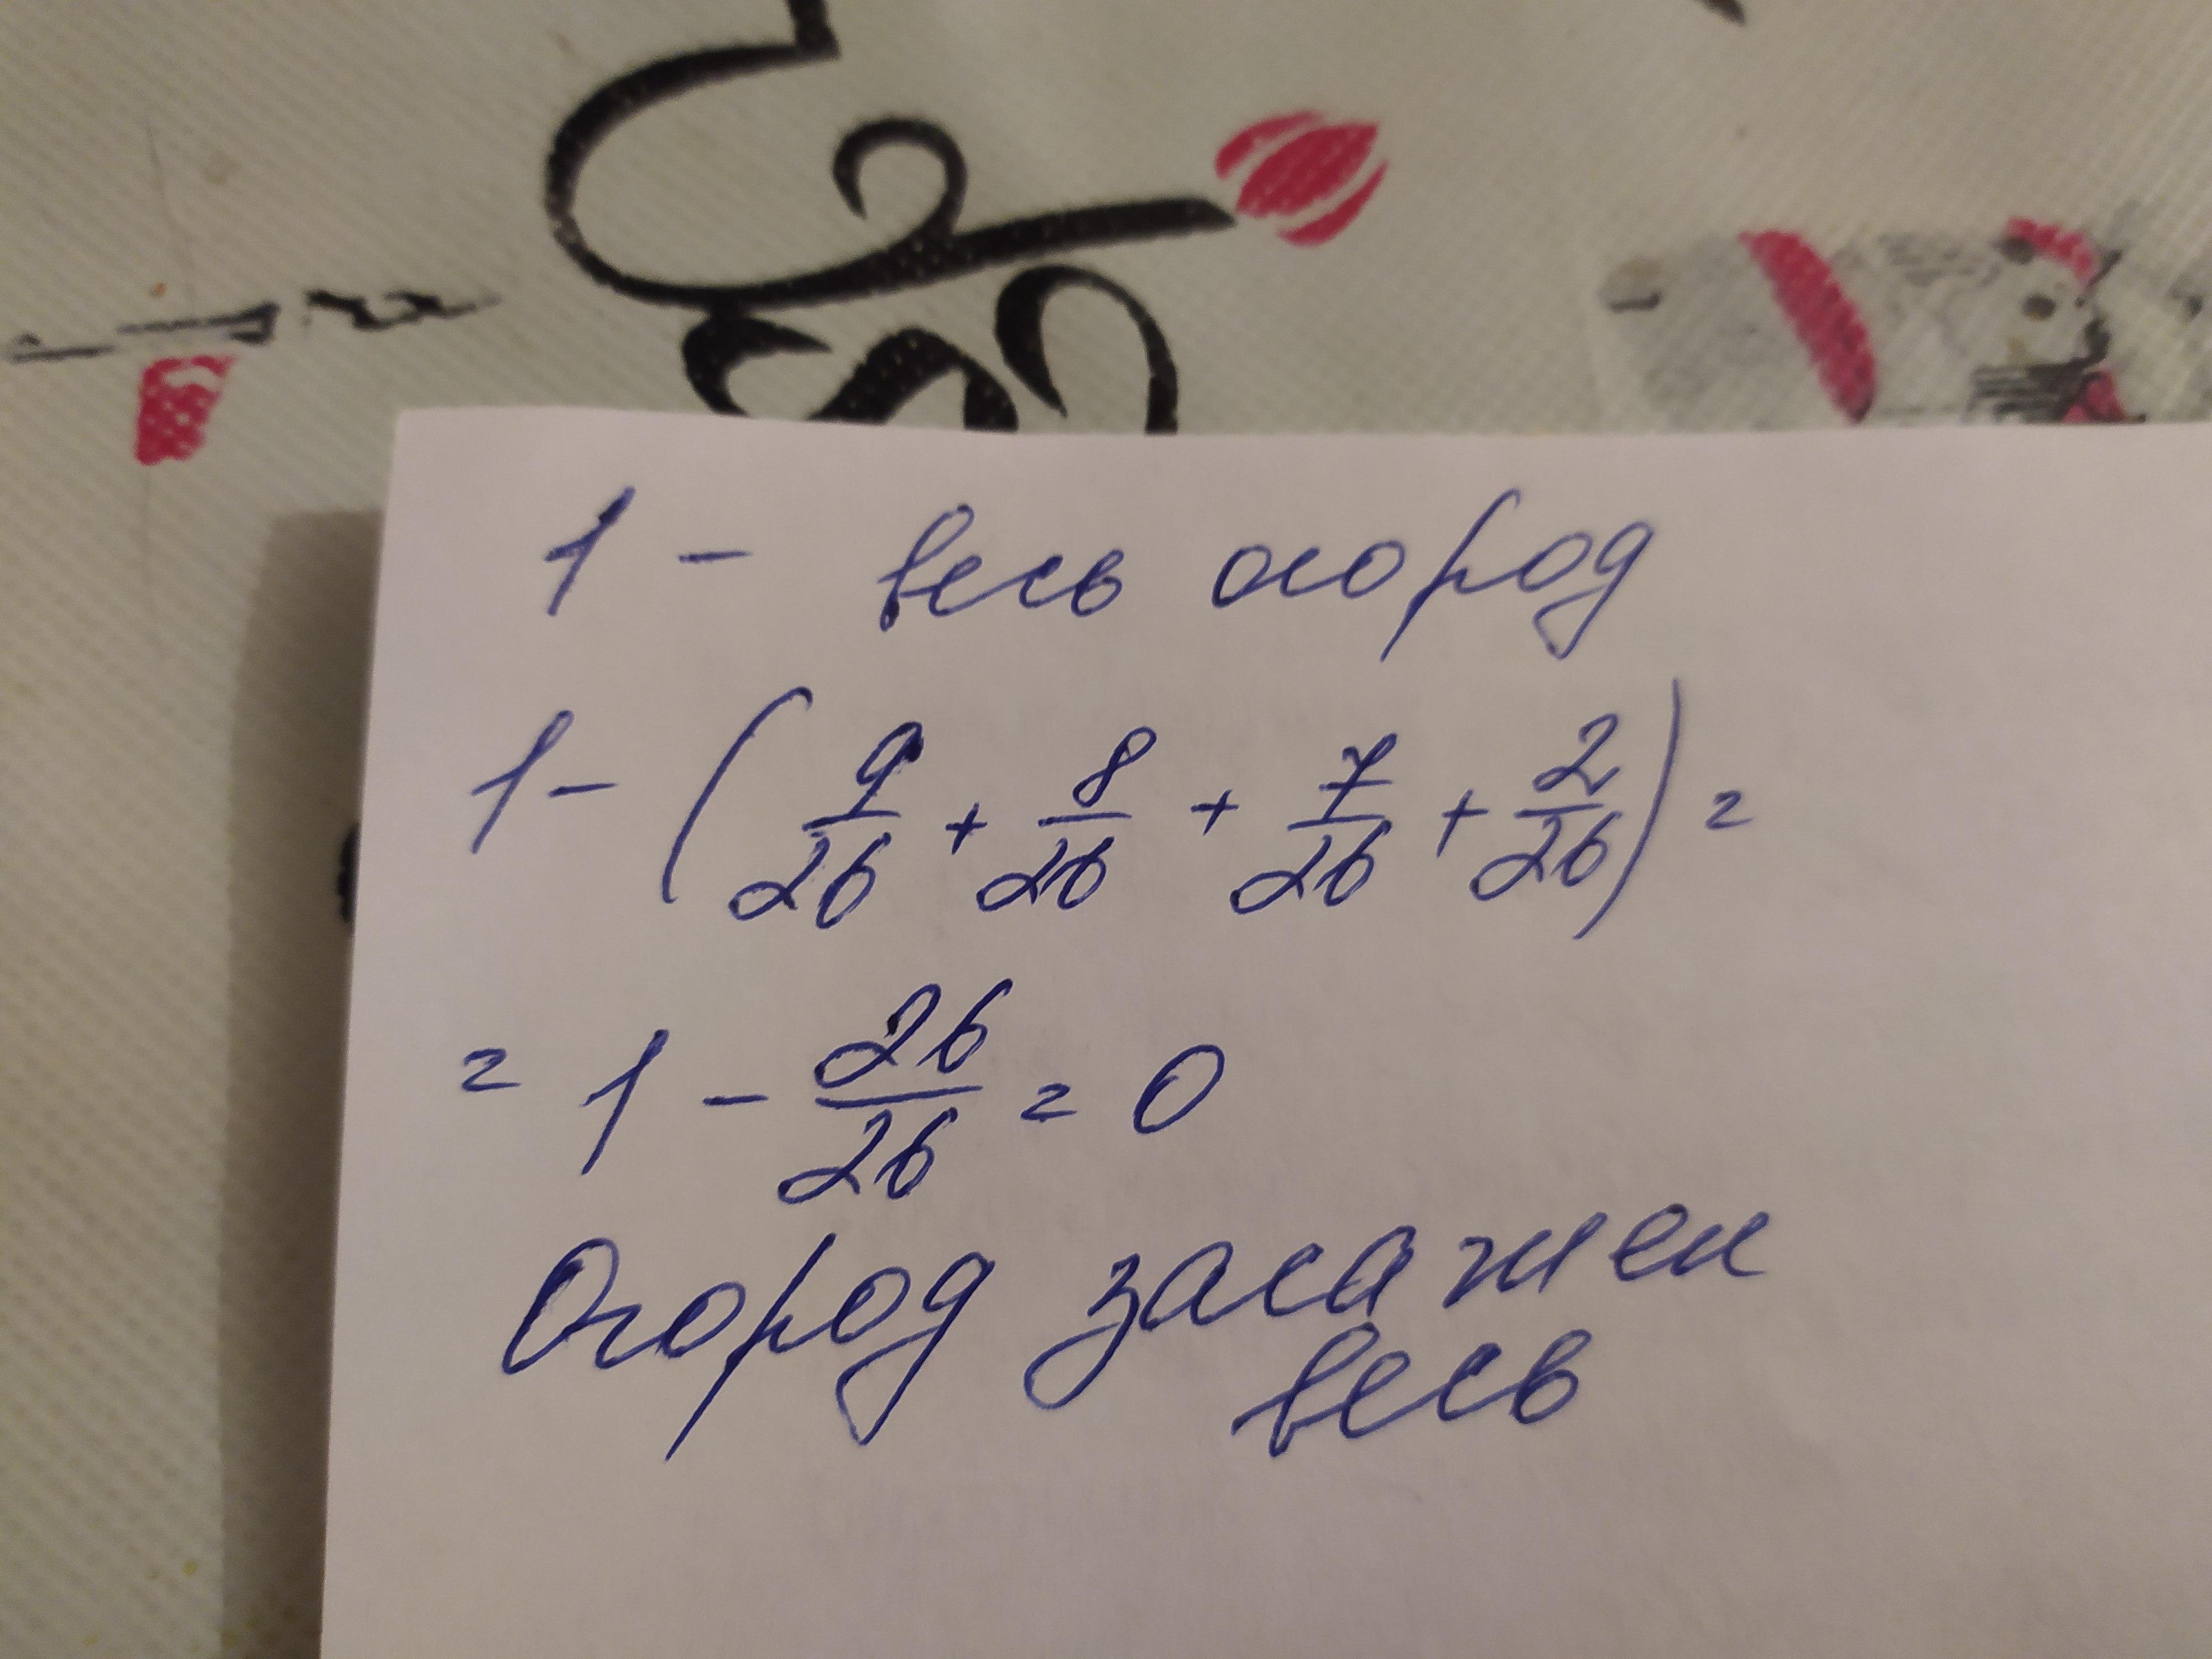 1 - весь огород
1 - (9/26 + 8/26 + 7/26 + 2/26) =
= 1 - 26/26 = 0
Огород засажен
весь